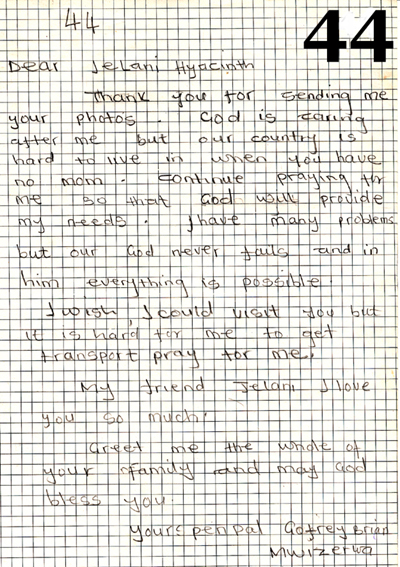 44
44
Dear Jelani Hyacinth
Thank you for sending me
your photos. God is caring
after me but our country is
hard to live in when you have
no mom. continue praying for
me so that God will provide
my needs. I have many problems
but our God never fails and in
him everything is possible.
I wish, I could visit you but
it is hard for me to get
transport pray for me.
My friend Jelani I love
you so much.
Greet me the whole of
your family and may God
bless you.
yours penpal Gofrey Brian
Mwizerwa